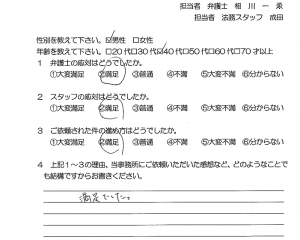 担当者 弁護士 相川 一
担当者 法務スタッフ 成田
性別を教えて下さい。☑男性 □女性
年齢を教えて下さい。□20代□30代☑40代□50代□60代□70才以上
1 弁護士の応対はどうでしたか。
①大変満足 ②満足 ③普通 ④不満 ⑤大変不満 ⑥分からない
2 スタッフの応対はどうでしたか。
①大変満足 ②満足 ③普通 ④不満 ⑤大変不満 ⑥分からない
3 ご依頼された件の進め方はどうでしたか。
①大変満足 ②満足 ③普通 ④不満 ⑤大変不満 ⑥分からない
4 上記1~3の理由、当事務所にご依頼いただいた感想など、どのようなことで
も結構ですからお書きください。
満足でした。